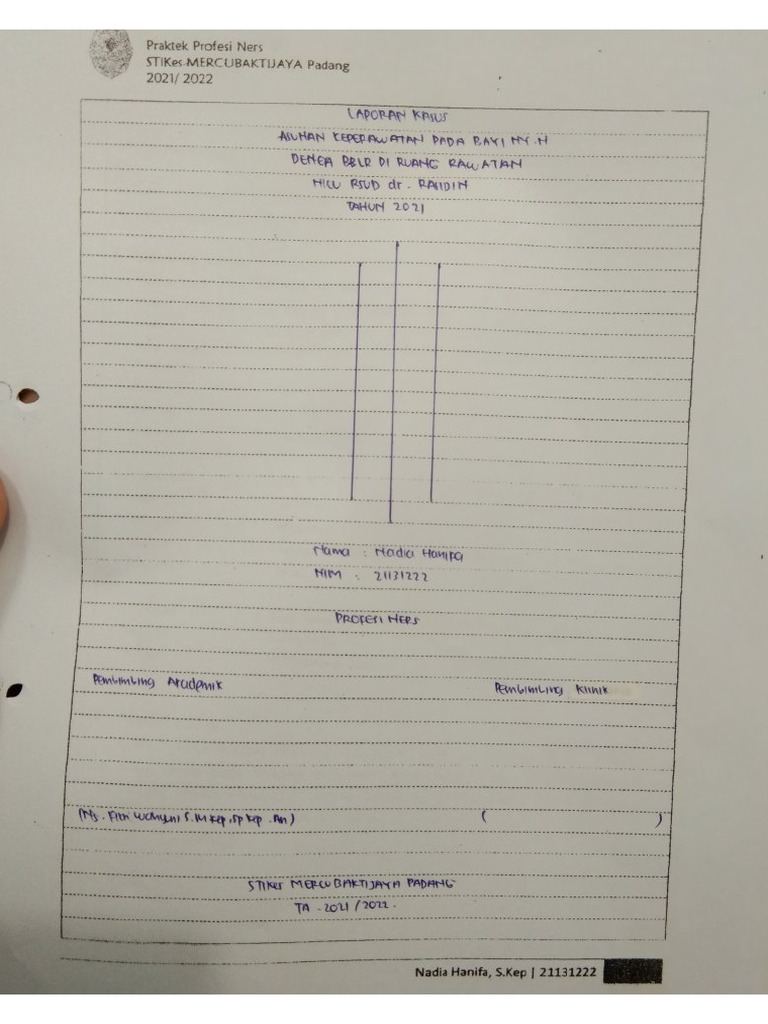 Praktek Profesi Ners
STIKes MERCUBAKTIJAYA Padang
2021/ 2022
LAPORAN KASUS
ASUHAN KEPERAWATAN PADA BAYI NY.N
DENGA BBLR DI RUANG RAWATAN
NICU RSUD dr. RASIDIN
TAHUN 2021
Nama : Nadia Hanifa
NIM : 21131222
PROFESI NERS
Pembimbing Akademik Pembimbing Klinik
(Ns. Fitri Wahyuni S.M.Kep,Sp Kep.An) ( )
STIKes MERCUBAKTIJAYA PADANG
TA .2021/2022.
Nadia Hanifa, S.Kep | 21131222